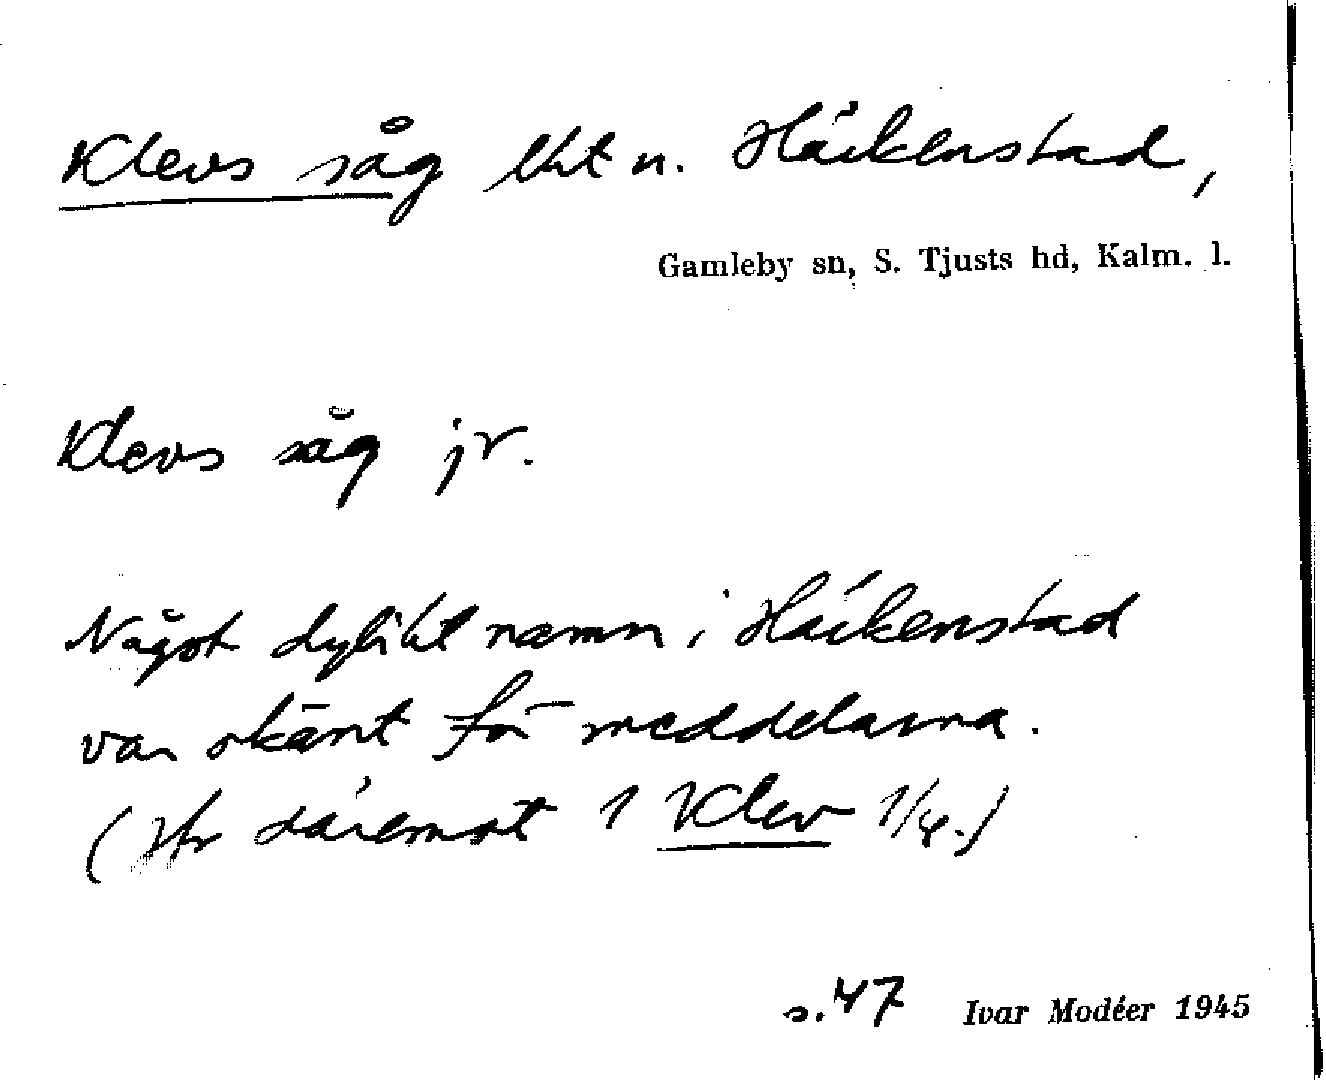 Klevs såg lht u. Häckenstad,
Gamleby sn, S. Tjusts hd, Kalm. l.
Klevs såg jr.
Något dylikt namn i Häckenstad
var okänt för meddelarna.
(Jfr däremot 1 Klev 1/4.)
s. 47 Ivar Modéer 1945